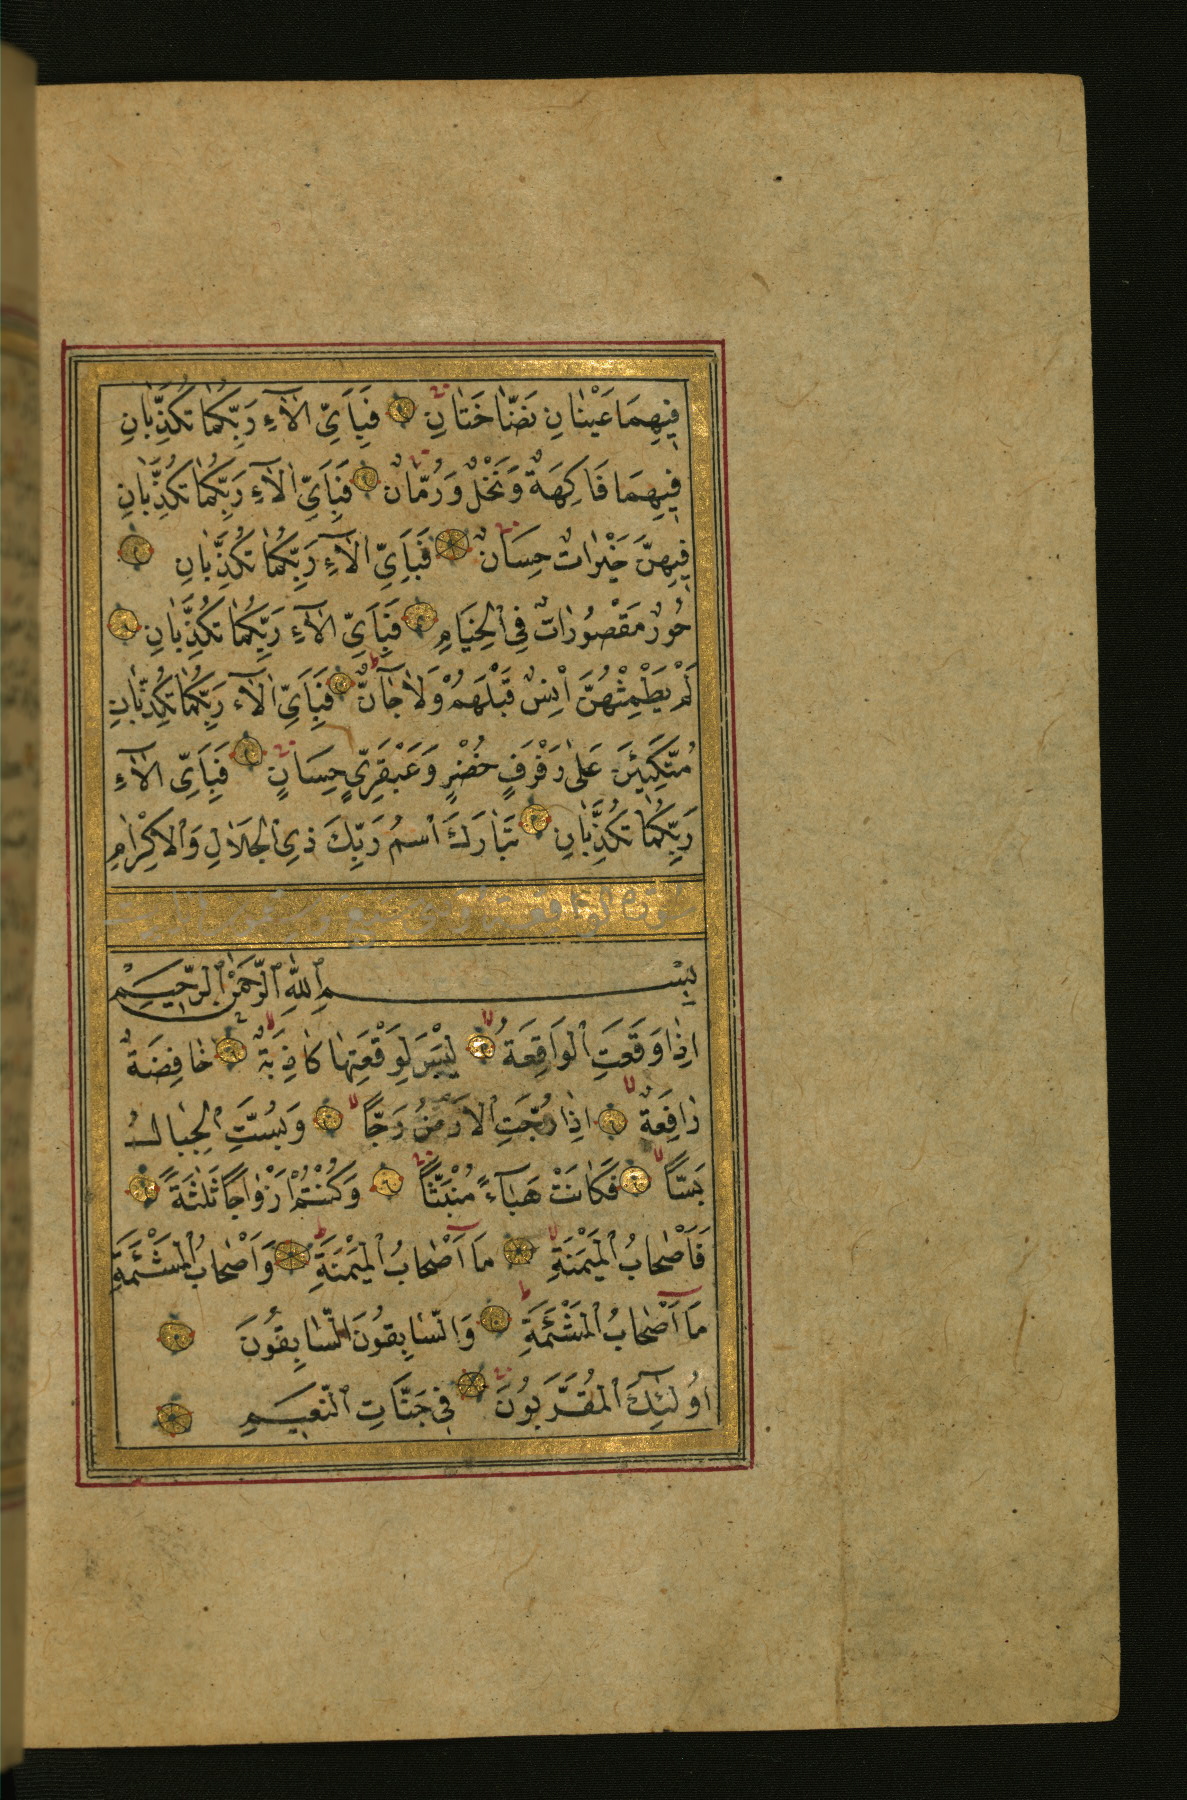 فِيهِمَا عَيْنَانِ نَضَّاخَتَانِ فَبِاَىِّ اٰلَآءِ رَبِّكُمَا تُكَذِّبَانِ
فِيهِمَا فَاكِهَةٌ وَنَخْلٌ وَرُمَّانٌ فَبِاَىِّ اٰلَآءِ رَبِّكُمَا تُكَذِّبَانِ
فِيهِنَّ خَيْرَاتٌ حِسَانٌ فَبِاَىِّ اٰلَآءِ رَبِّكُمَا تُكَذِّبَانِ
حُورٌ مَقْصُورَاتٌ فِى الْخِيَامِ فَبِاَىِّ اٰلَآءِ رَبِّكُمَا تُكَذِّبَانِ
لَمْ يَطْمِثْهُنَّ اِنْسٌ قَبْلَهُمْ وَلَا جَآنٌّ فَبِاَىِّ اٰلَآءِ رَبِّكُمَا تُكَذِّبَانِ
مُتَّكِـِٔينَ عَلٰى رَفْرَفٍ خُضْرٍ وَعَبْقَرِىٍّ حِسَانٍ فَبِاَىِّ اٰلَآءِ
رَبِّكُمَا تُكَذِّبَانِ تَبَارَكَ اسْمُ رَبِّكَ ذِى الْجَلَالِ وَالْاِكْرَامِ
سورة الواقعة
بِسْمِ اللّٰهِ الرَّحْمٰنِ الرَّحِيمِ
اِذَا وَقَعَتِ الْوَاقِعَةُ لَيْسَ لِوَقْعَتِهَا كَاذِبَةٌ خَافِضَةٌ
رَافِعَةٌ اِذَا رُجَّتِ الْاَرْضُ رَجًّا وَبُسَّتِ الْجِبَالُ
بَسًّا فَكَانَتْ هَبَآءً مُنْبَثًّا وَكُنْتُمْ اَزْوَاجًا ثَلٰثَةً
فَاَصْحَابُ الْمَيْمَنَةِ مَآ اَصْحَابُ الْمَيْمَنَةِ وَاَصْحَابُ الْمَشْـَٔمَةِ
مَآ اَصْحَابُ الْمَشْـَٔمَةِ وَالسَّابِقُونَ السَّابِقُونَ
اُولٰٓئِكَ الْمُقَرَّبُونَ فِى جَنَّاتِ النَّعِيمِ